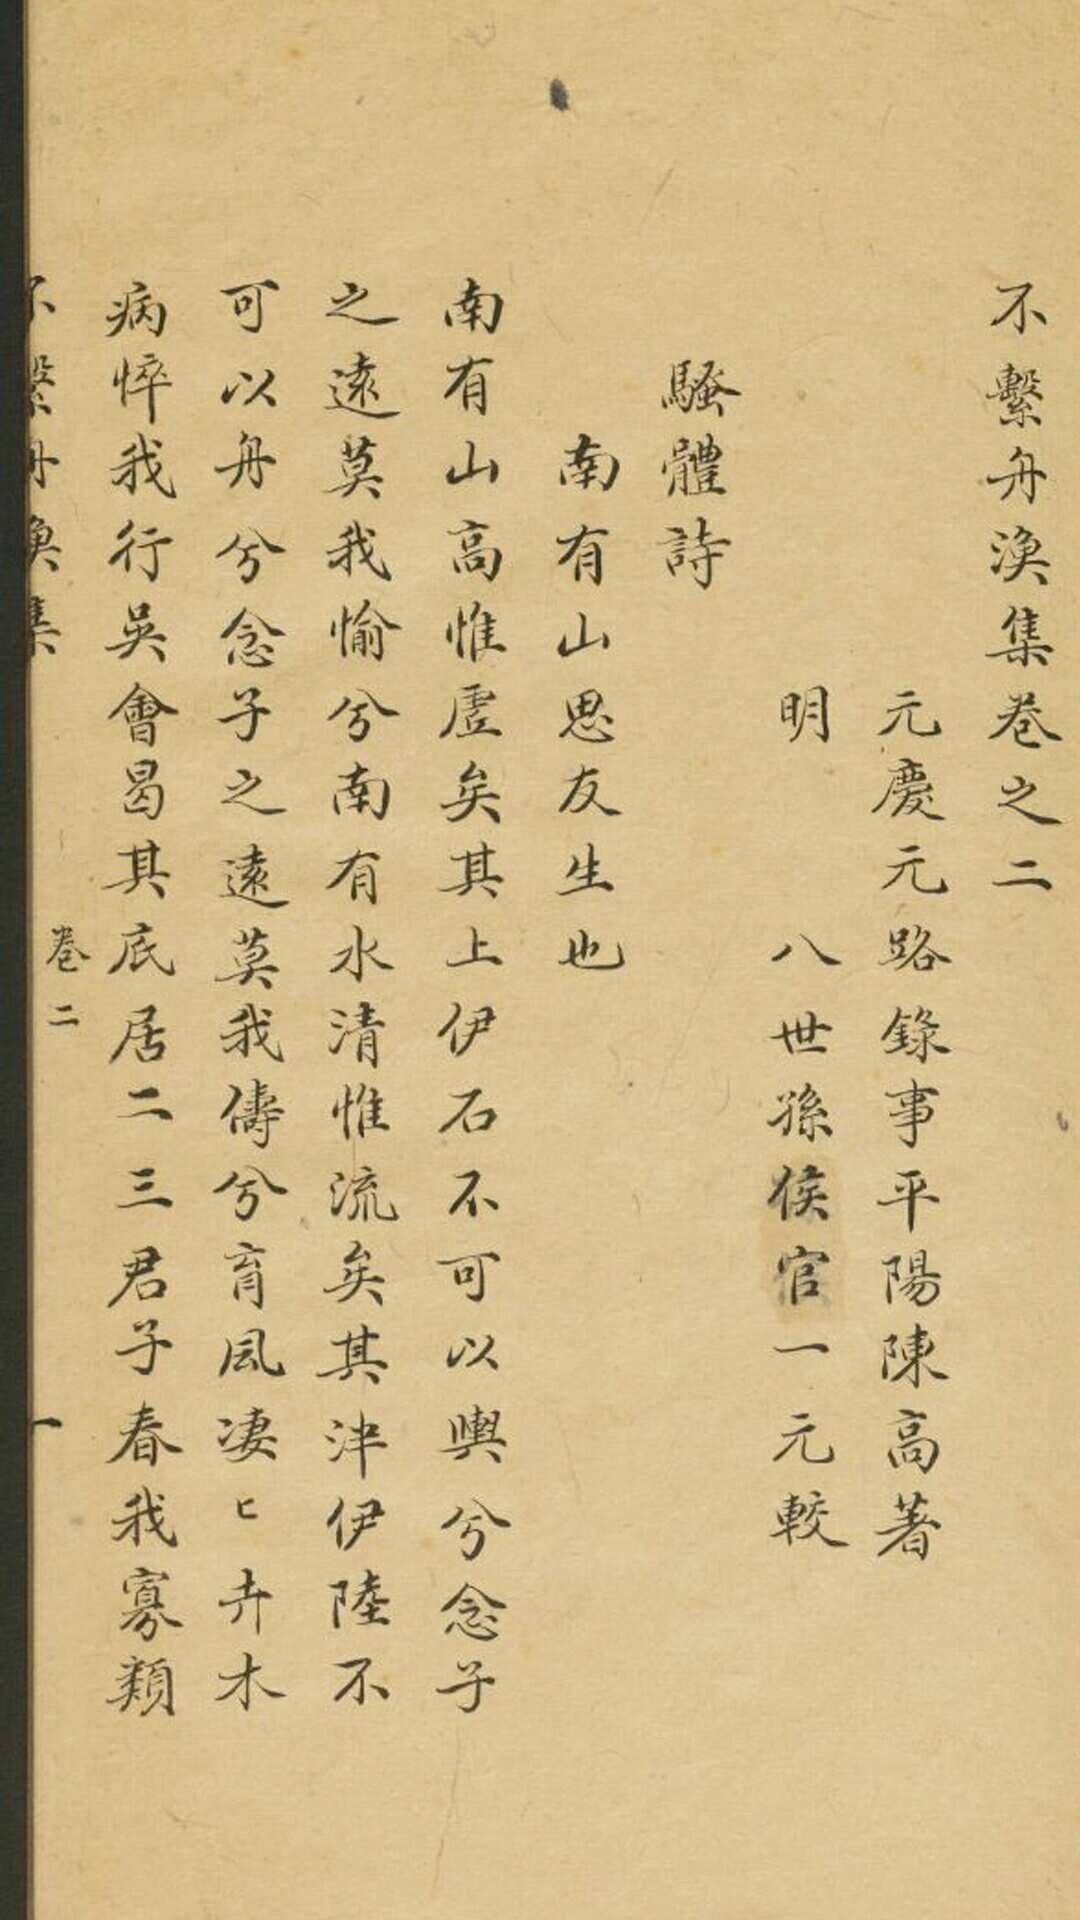 不繫舟漁集卷之二
元慶元路錄事平陽陳高著
明 八世孫侯官一元較
騷體詩
南有山思友生也
南有山高惟虛矣其上伊石不可以輿兮念子
之遠莫我愉兮南有水清惟流矣其津伊陸不
可以舟兮念子之遠莫我儔兮育風淒匕卉木
病悴我行吳會曷其底居二三君子春我寡類
不繫舟漁集
卷二
一